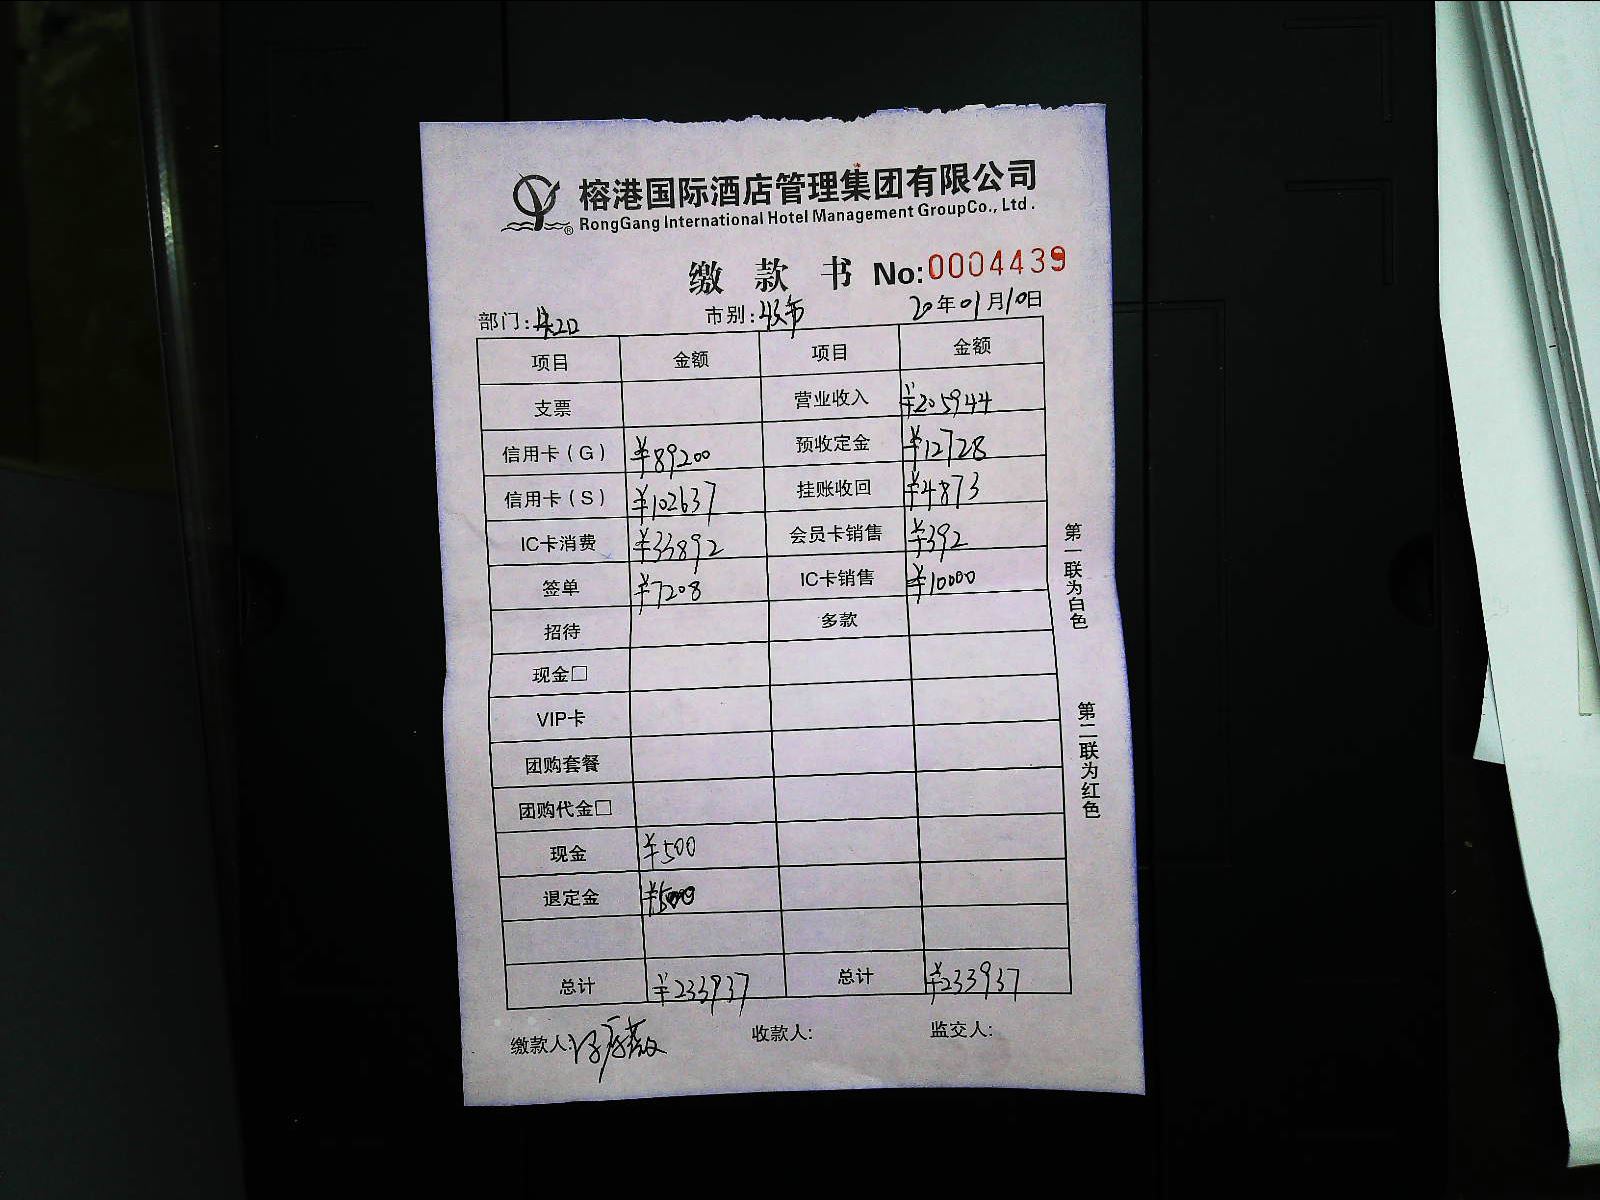 榕港国际酒店管理集团有限公司
RongGang International Hotel Management GroupCo., Ltd.
缴款书 No:0004439
部门: 市别: 20年01月10日
项目 金额 项目 金额
支票 营业收入 ¥205944
信用卡(G) ¥89200 预收定金 ¥12728
信用卡(S) ¥102637 挂账收回 ¥4873
IC卡消费 ¥33892 会员卡销售 ¥392
签单 ¥7208 IC卡销售 ¥10000
招待 多款
现金□
VIP卡
团购套餐
团购代金□
现金 ¥500
退定金 ¥500
总计 ¥233937 总计 ¥233937
缴款人: 收款人: 监交人:
第一联为白色
第二联为红色